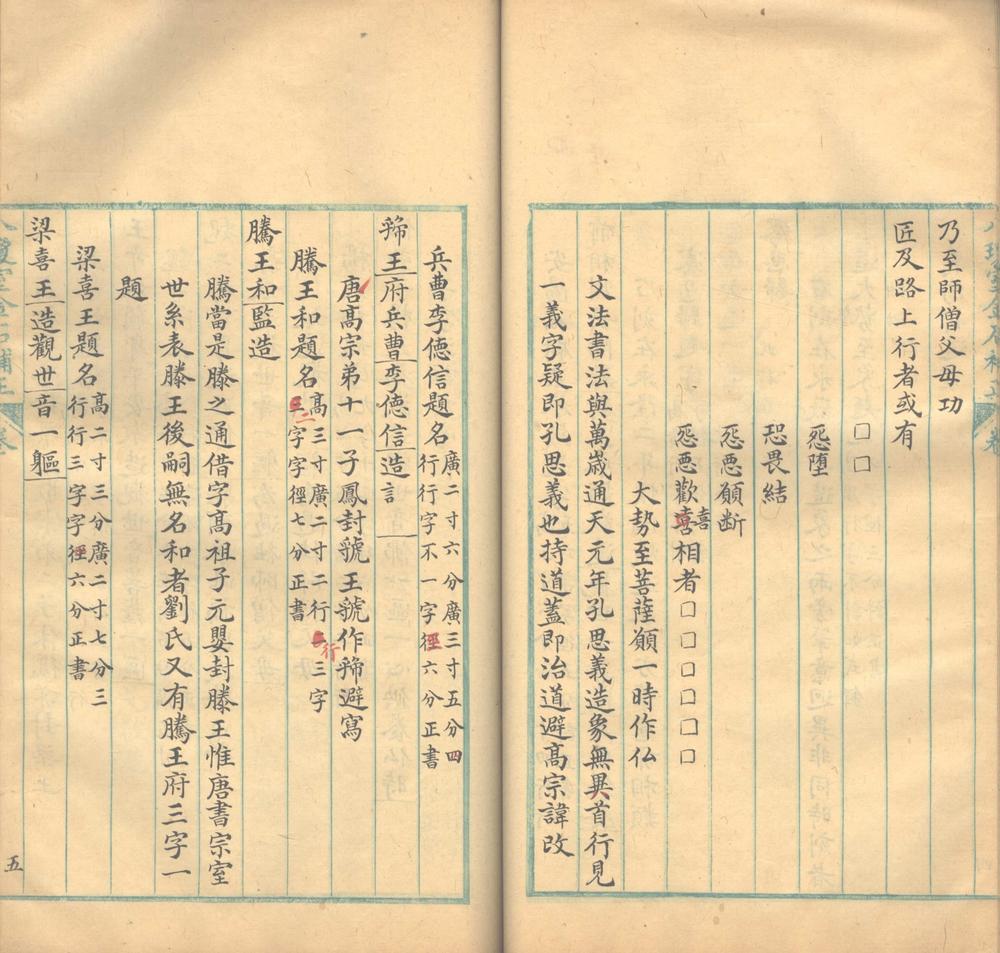 乃至師僧父母功
匠及路上行者或有
□□
惡墮
恐畏結
惡惡願斷
惡惡歡喜相者□□□□□□
喜
大勢至菩薩願一時作仏
文法書法與萬歲通天元年孔思義造象無異首行見
一義字疑即孔思義也持道蓋即治道避高宗諱改
兵曹李德信題名廣二寸六分廣三寸五分四行行字不一字徑六分正書
王府兵曹李德信造言
唐高宗弟十一子鳳封虢王虢作避寫
騰王和題名高三寸廣二寸二行三字字徑七分正書
二
行
騰王和監造
騰當是滕之通借字高祖子元嬰封滕王惟唐書宗室
世系表滕王後嗣無名和者劉氏又有騰王府三字一
題
梁喜王題名高二寸三分廣二寸七分三行行三字字徑六分正書
梁喜王造觀世音一軀
五